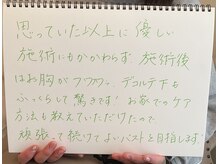 思っていた以上に優しい
施術にもかかわらず、施術後
はお胸がフワフワ、デコルテ下も
ふっくらして驚きです！お家でのケア
方法も教えていただけたので、
頑張って続けてよいバストを目指します